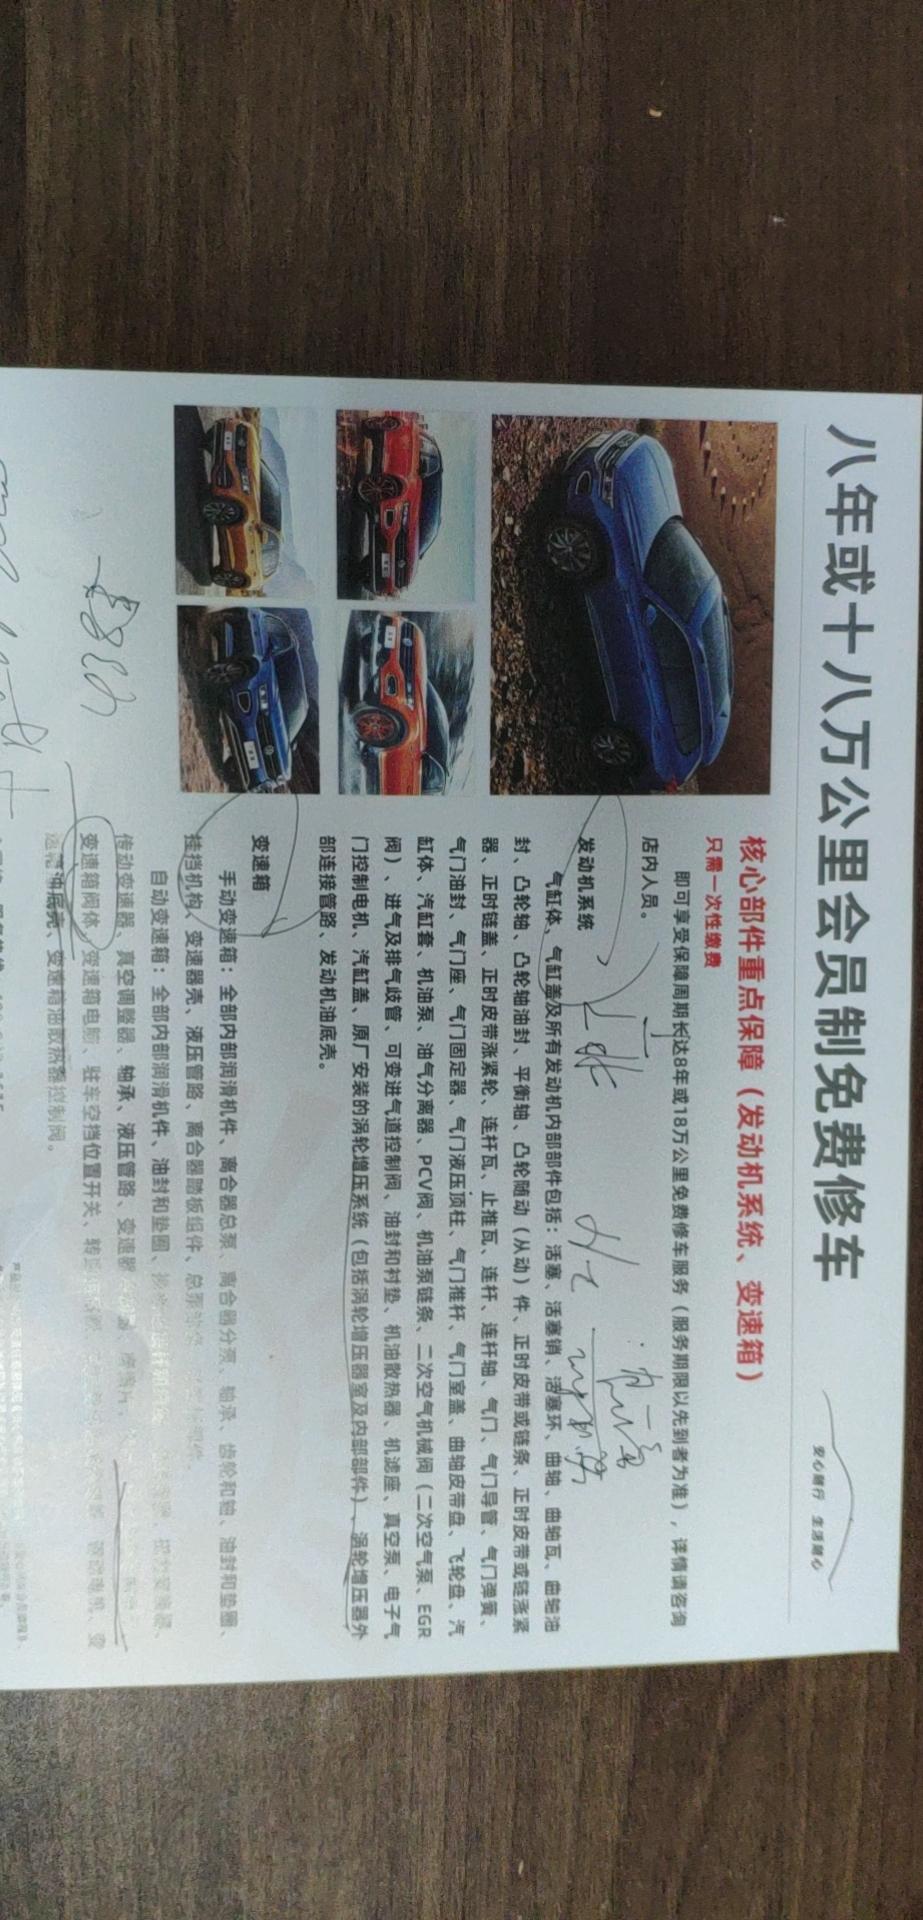 八年或十八万公里会员制免费修车
安心随行 生活随心
核心部件重点保障（发动机系统、变速箱）
只需一次性缴费
即可享受保障周期长达8年或18万公里免费修车服务（服务期限以先到者为准），详情请咨询
店内人员。
发动机系统
气缸体、气缸盖及所有发动机内部部件包括：活塞、活塞销、活塞环、曲轴、曲轴瓦、曲轴油
封、凸轮轴、凸轮轴油封、平衡轴、凸轮随动（从动）件、正时皮带或链条、正时皮带或链涨紧
器、正时链盖、正时皮带涨紧轮、连杆瓦、止推瓦、连杆、连杆轴、气门、气门导管、气门弹簧、
气门油封、气门座、气门固定器、气门液压顶柱、气门推杆、气门室盖、曲轴皮带盘、飞轮盘、汽
缸体、汽缸套、机油泵、油气分离器、PCV阀、机油泵链条、二次空气机械阀（二次空气泵、EGR
阀）、进气及排气歧管、可变进气道控制阀、油封和衬垫、机油散热器、机滤座、真空泵、电子气
门控制电机、汽缸盖、原厂安装的涡轮增压系统（包括涡轮增压器室及内部部件）、涡轮增压器外
部连接管路、发动机油底壳。
变速箱
手动变速箱：全部内部润滑机件、离合器总泵、离合器分泵、轴承、齿轮和轴、油封和垫圈、
挂挡机构、变速器壳、液压管路、离合器踏板组件、总泵
自动变速箱：全部内部润滑机件、油封和垫圈、
传动变速器、真空调整器、轴承、液压管路、变速器
变速箱阀体、变速箱电脑、驻车空挡位置开关、
油底壳、变速箱油散热器控制阀。